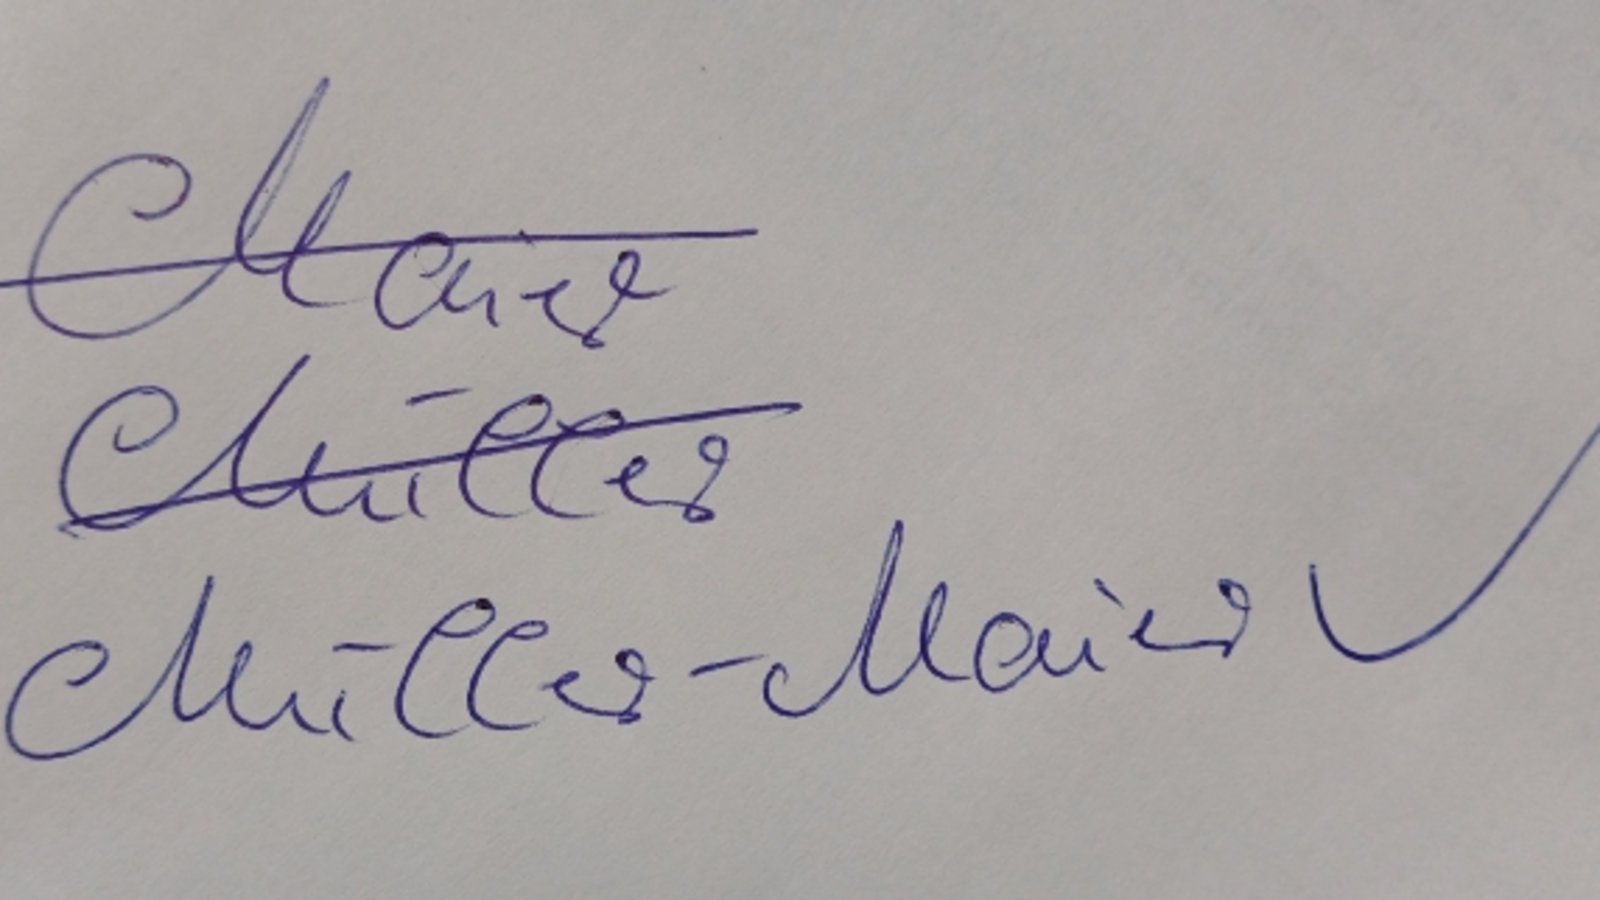 Maier
Müller
Müller-Maier